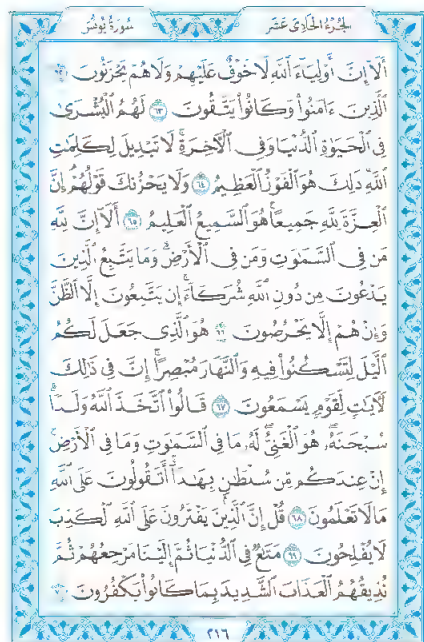 الجزء الحادي عشر سورة يونس
أَلَآ إِنَّ أَوْلِيَآءَ ٱللَّهِ لَا خَوْفٌ عَلَيْهِمْ وَلَا هُمْ يَحْزَنُونَ ٦٢
ٱلَّذِينَ ءَامَنُوا۟ وَكَانُوا۟ يَتَّقُونَ ٦٣ لَهُمُ ٱلْبُشْرَىٰ
فِى ٱلْحَيَوٰةِ ٱلدُّنْيَا وَفِى ٱلْـَٔاخِرَةِ ۚ لَا تَبْدِيلَ لِكَلِمَـٰتِ
ٱللَّهِ ۚ ذَٰلِكَ هُوَ ٱلْفَوْزُ ٱلْعَظِيمُ ٦٤ وَلَا يَحْزُنكَ قَوْلُهُمْ ۘ إِنَّ
ٱلْعِزَّةَ لِلَّهِ جَمِيعًا ۚ هُوَ ٱلسَّمِيعُ ٱلْعَلِيمُ ٦٥ أَلَآ إِنَّ لِلَّهِ
مَن فِى ٱلسَّمَـٰوَٰتِ وَمَن فِى ٱلْأَرْضِ ۗ وَمَا يَتَّبِعُ ٱلَّذِينَ
يَدْعُونَ مِن دُونِ ٱللَّهِ شُرَكَآءَ ۚ إِن يَتَّبِعُونَ إِلَّا ٱلظَّنَّ
وَإِنْ هُمْ إِلَّا يَخْرُصُونَ ٦٦ هُوَ ٱلَّذِى جَعَلَ لَكُمُ
ٱلَّيْلَ لِتَسْكُنُوا۟ فِيهِ وَٱلنَّهَارَ مُبْصِرًا ۚ إِنَّ فِى ذَٰلِكَ
لَـَٔايَـٰتٍ لِّقَوْمٍ يَسْمَعُونَ ٦٧ قَالُوا۟ ٱتَّخَذَ ٱللَّهُ وَلَدًا ۗ
سُبْحَـٰنَهُۥ ۖ هُوَ ٱلْغَنِىُّ ۖ لَهُۥ مَا فِى ٱلسَّمَـٰوَٰتِ وَمَا فِى ٱلْأَرْضِ ۚ
إِنْ عِندَكُم مِّن سُلْطَـٰنٍۭ بِهَـٰذَآ ۚ أَتَقُولُونَ عَلَى ٱللَّهِ
مَا لَا تَعْلَمُونَ ٦٨ قُلْ إِنَّ ٱلَّذِينَ يَفْتَرُونَ عَلَى ٱللَّهِ ٱلْكَذِبَ
لَا يُفْلِحُونَ ٦٩ مَتَـٰعٌ فِى ٱلدُّنْيَا ثُمَّ إِلَيْنَا مَرْجِعُهُمْ ثُمَّ
نُذِيقُهُمُ ٱلْعَذَابَ ٱلشَّدِيدَ بِمَا كَانُوا۟ يَكْفُرُونَ ٧٠
٢١٦